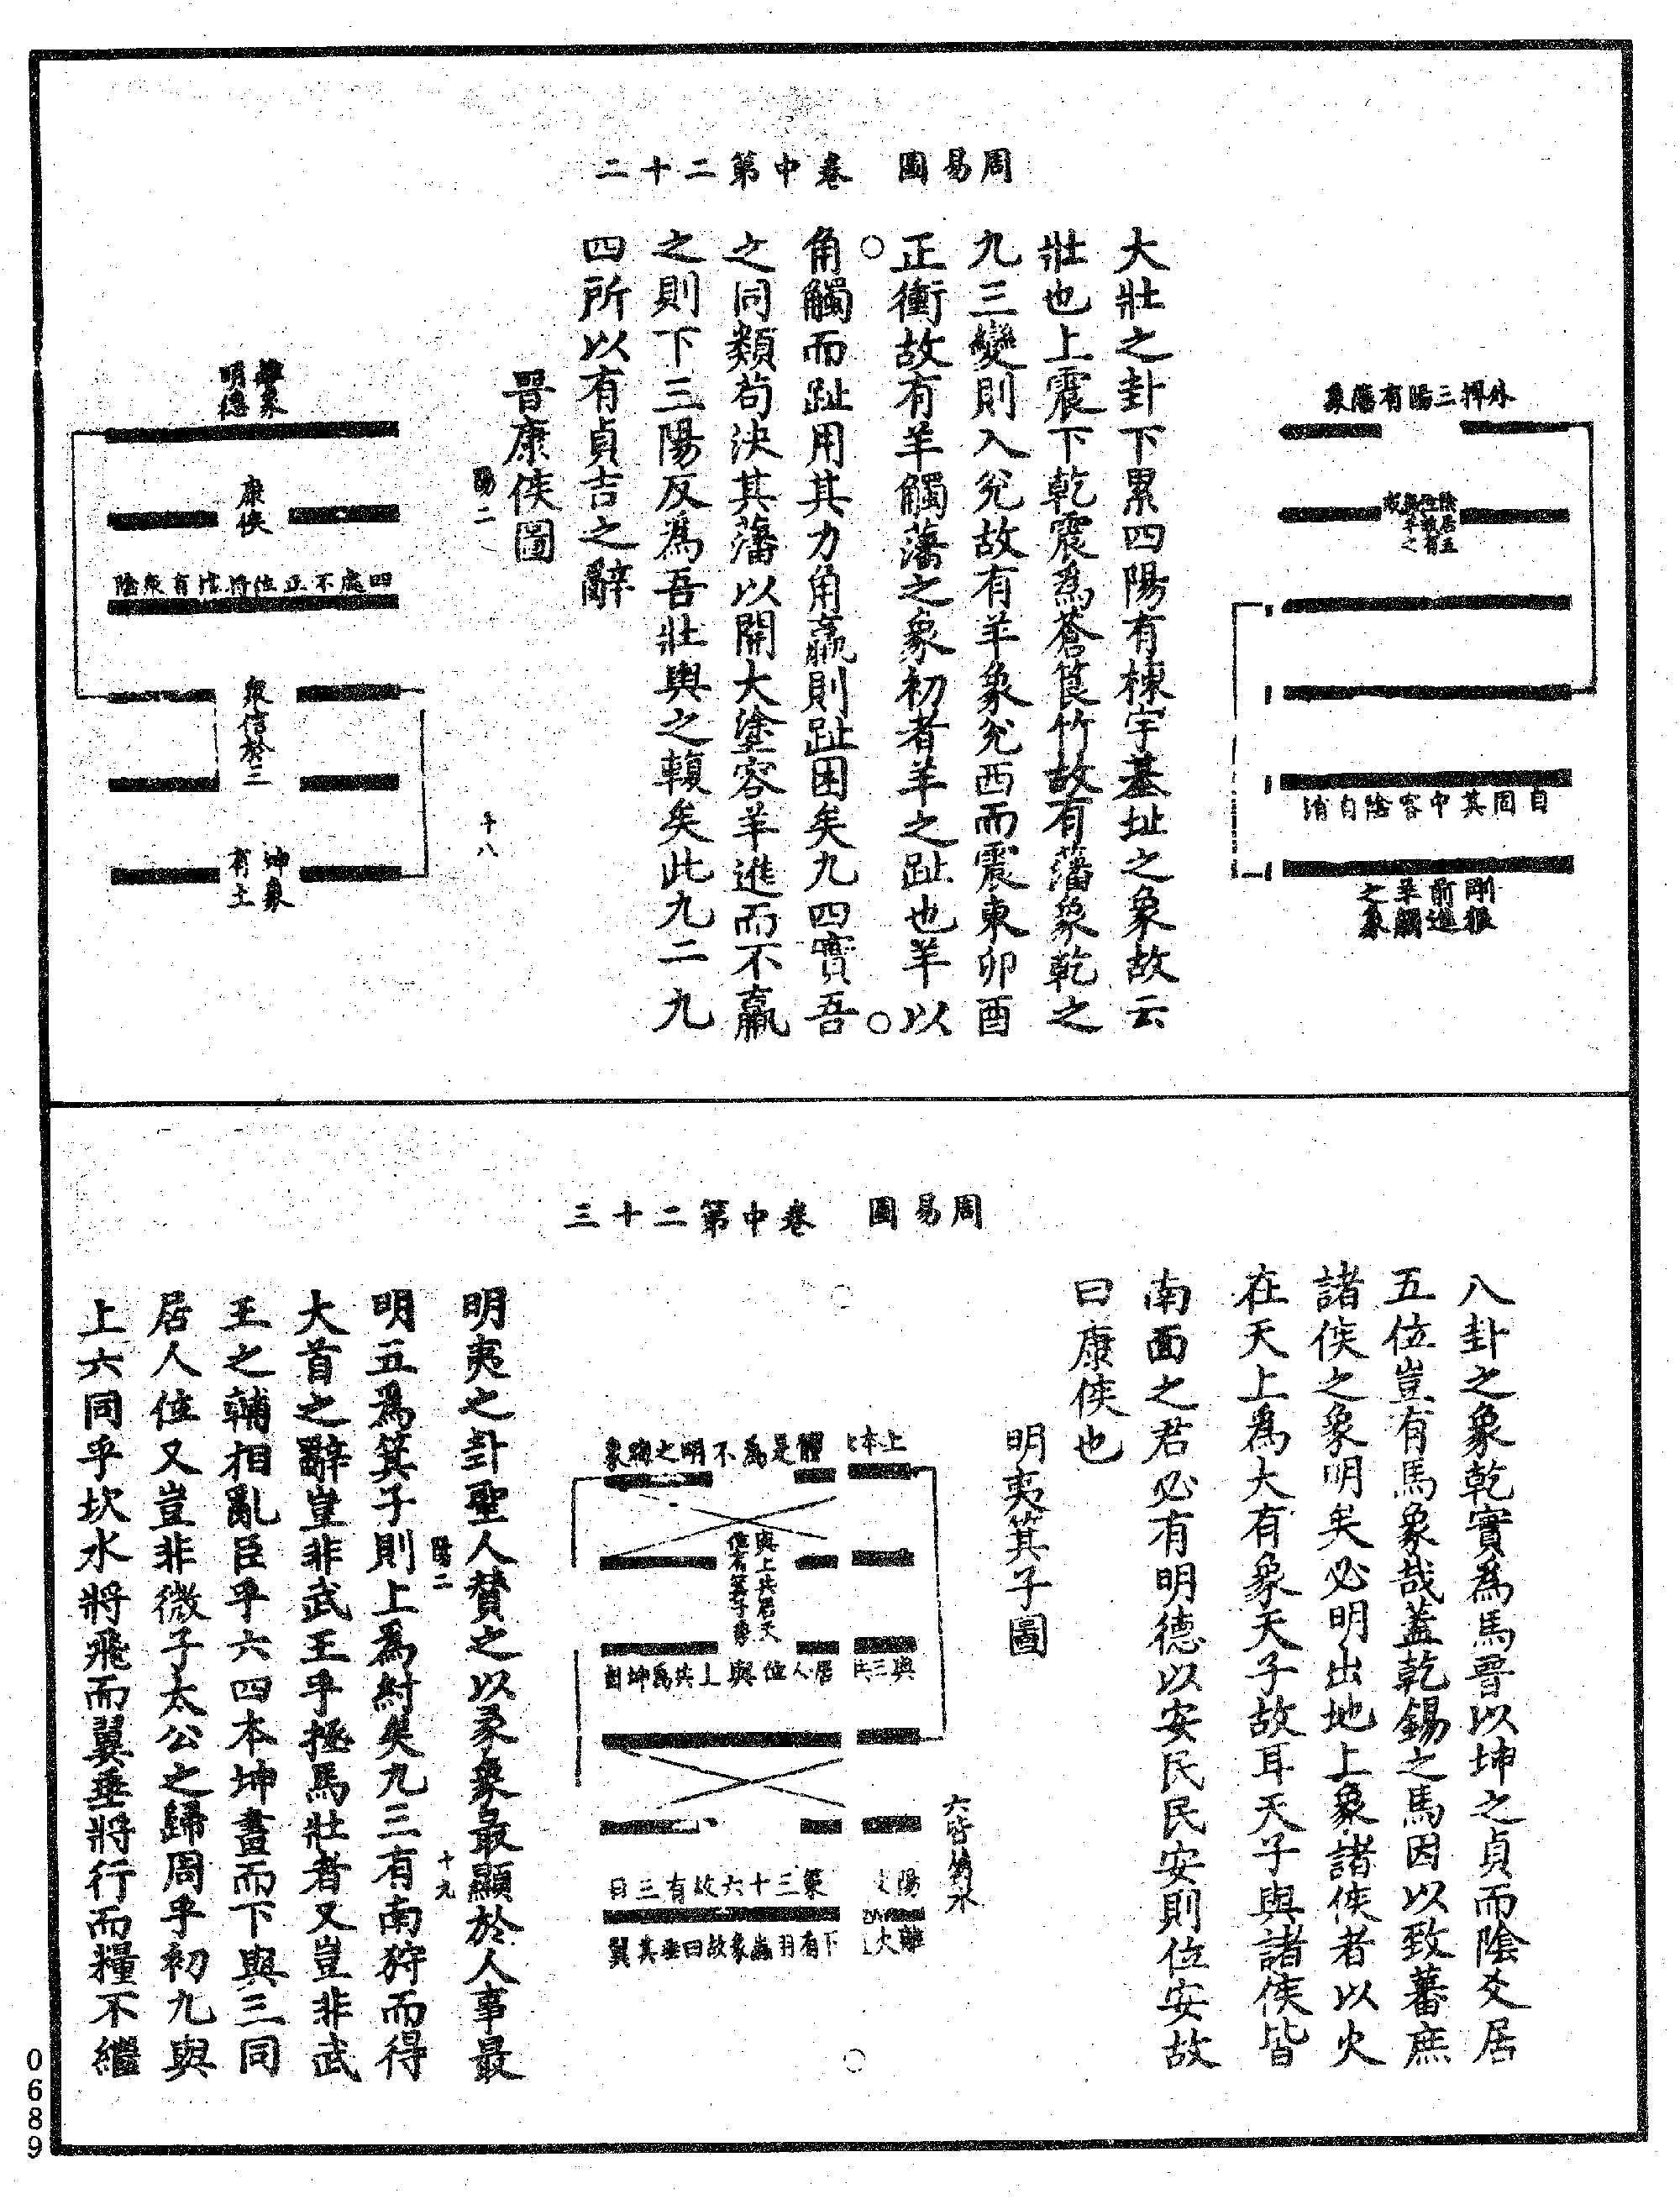 周易圖　卷中第二十二
外捍三陽有藩象
陰居五
位雖有
與乎之
自固其中容陰自消
剛根
前進
羊觸
之象
大壯之卦下累四陽有棟宇基址之象故云
壯也上震下乾震為蒼筤竹故有藩象乾之
九三變則入兌故有羊象兌西而震東卯酉
正衝故有羊觸藩之象初者羊之趾也羊以
角觸而趾用其力角羸則趾困矣九四實吾
之同類苟決其藩以開大塗容羊進而不羸
之則下三陽反為吾壯輿之輹矣此九二九
四所以有貞吉之辭
晉康侯圖
陽二
十八
離象
明德
康侯
四處不正位將陰有眾陰
眾信於三
坤象
有土
周易圖　卷中第二十三
八卦之象乾實為馬晉以坤之貞而陰爻居
五位豈有馬象哉蓋乾錫之馬因以致蕃庶
諸侯之象明矣必明出地上象諸侯者以火
在天上為大有象天子故耳天子與諸侯皆
南面之君必有明德以安民民安則位安故
曰康侯也
明夷箕子圖
上本
體是為不明之晦象
與上共居天
位有箕子象
與三
居人位與上共為坤
六二
陽
策三十六故有三日
離火
下有羽蟲象故曰垂其翼
明夷之卦聖人贊之以彖象最顯於人事最
明五為箕子則上為紂矣九三有南狩而得
大首之辭豈非武王乎拯馬壯者又豈非武
王之輔相亂臣乎六四本坤畫而下與三同
居人位又豈非微子太公之歸周乎初九與
上六同乎坎水將飛而翼垂將行而糧不繼
陽二
十九
0689